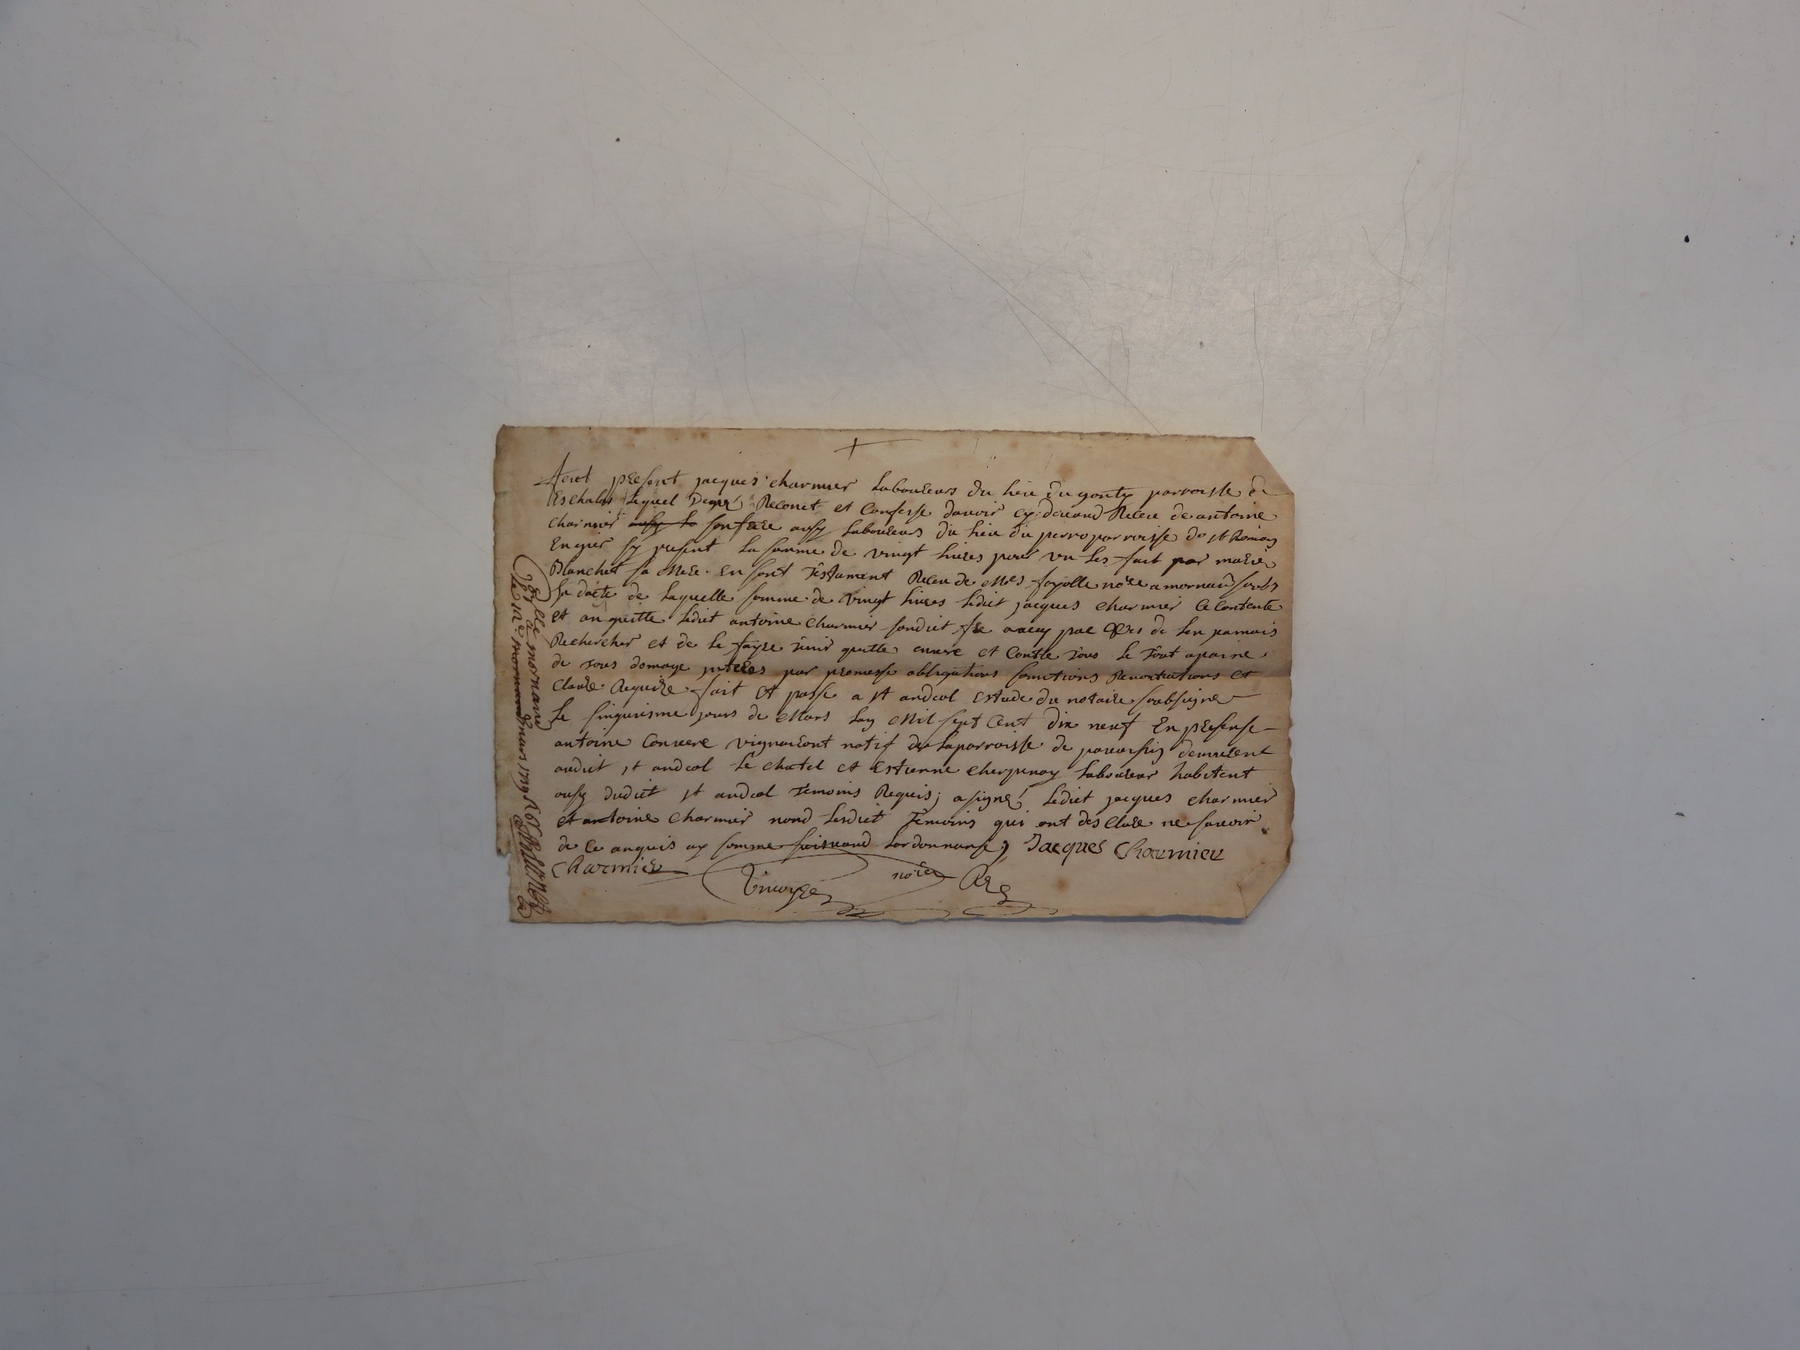 feut present jacques charmier laboureurs du lieu du gonty parroisse de
Eschalas lequel Degré Reconet et Confesse davoir cy devand Receu de antoine
charmier son frere aussy laboureurs du lieu du perro parroisse de st Romain
En gier sy present la somme de vingt livres pour un les fait par marie
Blanchet sa Mere en sont Testament Receu de Mes fayolle nore a mornand soubs
sa datte de laquelle somme de Vingt livres ledict jacques charmier Ce Contente
Et an quitte ledict antoine charmier sondict fre avecq pac de len jamais
Rechercher et de le fayre tenir quitte envere et Contre tous le tout apaine
de tous domage par promesse obligations Renontiations et
Clauze Requize fait et passe a st andeol Estude du notaire soubsigne
Le sinquiesme jours de Mars lan Mil sept Cent dix neuf En presense
antoine Convere vigneront natif de la parroisse de demeurent
audict st andeol le chatel et Estienne laboureur habitent
ausy dudict st andeol Temoins Requis; a signé ledict jacques charmier
et antoine charmier nond lesdict Temoins qui ont desclare ne savoir
de Ce anquis ay somme suivand lordonnanse Jacques Charmieu
Charmier
nore
Cllé a mornand
mars 1719